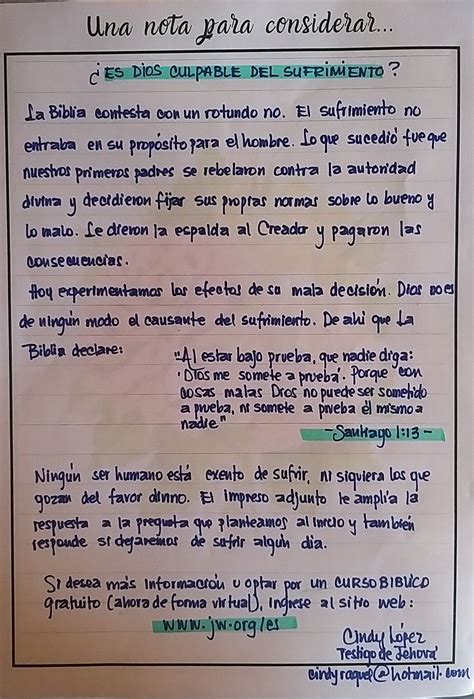 Una nota para considerar...
¿ES DIOS CULPABLE DEL SUFRIMIENTO?
La Biblia contesta con un rotundo no. El sufrimiento no
entraba en su propósito para el hombre. Lo que sucedió fue que
nuestros primeros padres se rebelaron contra la autoridad
divina y decidieron fijar sus propias normas sobre lo bueno y
lo malo. Le dieron la espalda al Creador y pagaron las
consecuencias.
Hoy experimentamos los efectos de su mala decisión. Dios no es
de ningún modo el causante del sufrimiento. De ahí que La
Biblia declare:
"Al estar bajo prueba, que nadie diga:
'Dios me somete a prueba'. Porque con
cosas malas Dios no puede ser sometido
a prueba, ni somete a prueba él mismo a
nadie"
-Santiago 1:13-
Ningún ser humano está exento de sufrir, ni siquiera los que
gozan del favor divino. El impreso adjunto le amplía la
respuesta a la pregunta que planteamos al inicio y también
responde si dejaremos de sufrir algún día.
Si desea más información u optar por un CURSO BIBLICO
gratuito (ahora de forma virtual), ingrese al sitio web:
www.jw.org/es
Cindy López
Testigo de Jehová
cindyraquel@hotmail.com